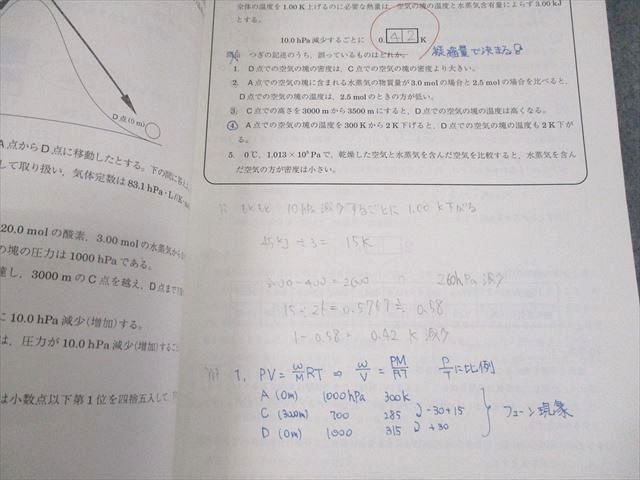 全体の温度を 1.00 K 上げるのに必要な熱量は、空気の塊の温度と水蒸気含有量によらず 3.00 kJ
とする。
10.0 hPa 減少するごとに 0. 4 2 K
凝縮量で決まる
つぎの記述のうち、誤っているものはどれか。
1. D点での空気の塊の密度は、C点での空気の塊の密度より大きい。
2. A点での空気の塊に含まれる水蒸気の物質量が 3.0 mol の場合と 2.5 mol の場合を比べると、
D点での空気の塊の温度は、2.5 mol のときの方が低い。
3. C点での高さを 3000 m から 3500 m にすると、D点での空気の温度は高くなる。
4. A点での空気の塊の温度を 300 K から 2 K 下げると、D点での空気の温度も 2 K 下が
る。
5. 0℃, 1.013×10⁵ Pa で、乾燥した空気と水蒸気を含んだ空気を比較すると、水蒸気を含ん
だ空気の方が密度は小さい。
D点(0 m)
A点からD点に移動したとする。下の問に答え
して取り扱い、気体定数は 83.1 hPa・L
20.0 mol の酸素、3.00 mol の水蒸気から
の塊の圧力は 1000 hPa である。
達し、3000 m の C 点を越え、D点まで
に 10.0 hPa 減少(増加)する。
は、圧力が 10.0 hPa 減少(増加)するご
は小数点以下第 1 位を四捨五入して、
もともと 10 hPa 減少するごとに 1.00 K 下がる
45 kJ ÷ 3 = 15 K
260 hPa 減少
15 ÷ 26 = 0.5767 ≒ 0.58
1 - 0.58 = 0.42 K 減少
1. PV = w/M RT ⇒ w/V = PM/RT P/T に比例
A (0m) 1000hPa 300K
C (3000m) 700 285 -30+15
D (0m) 1000 315 +30
フェーン現象